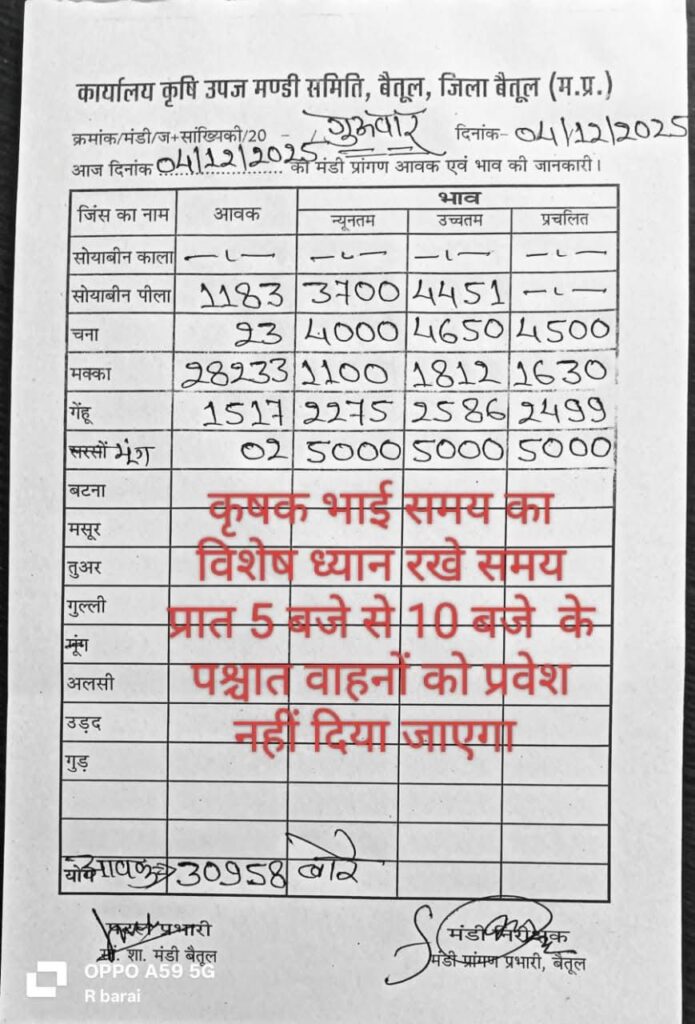 कार्यालय कृषि उपज मण्डी समिति, बैतूल, जिला बैतूल (म.प्र.)
क्रमांक/मंडी/ज+सांख्यिकी/20 - गुरुवार दिनांक- 04/12/2025
आज दिनांक 04/12/2025 की मंडी प्रांगण आवक एवं भाव की जानकारी।
जिंस का नाम आवक भाव
न्यूनतम उच्चतम प्रचलित
सोयाबीन काला -- -- -- --
सोयाबीन पीला 1183 3700 4451 --
चना 23 4000 4650 4500
मक्का 28233 1100 1812 1630
गेंहू 1517 2275 2586 2499
सरसों मूंग 02 5000 5000 5000
बटना
मसूर
तुअर
गुल्ली
मूंग
अलसी
उड़द
गुड़
कृषक भाई समय का
विशेष ध्यान रखे समय
प्रात 5 बजे से 10 बजे के
पश्चात वाहनों को प्रवेश
नहीं दिया जाएगा
योग आवक 30958 बोरे
प्रभारी
शा. मंडी बैतूल
मंडी निरीक्षक
मंडी प्रांगण प्रभारी, बैतूल
OPPO A59 5G
R barai